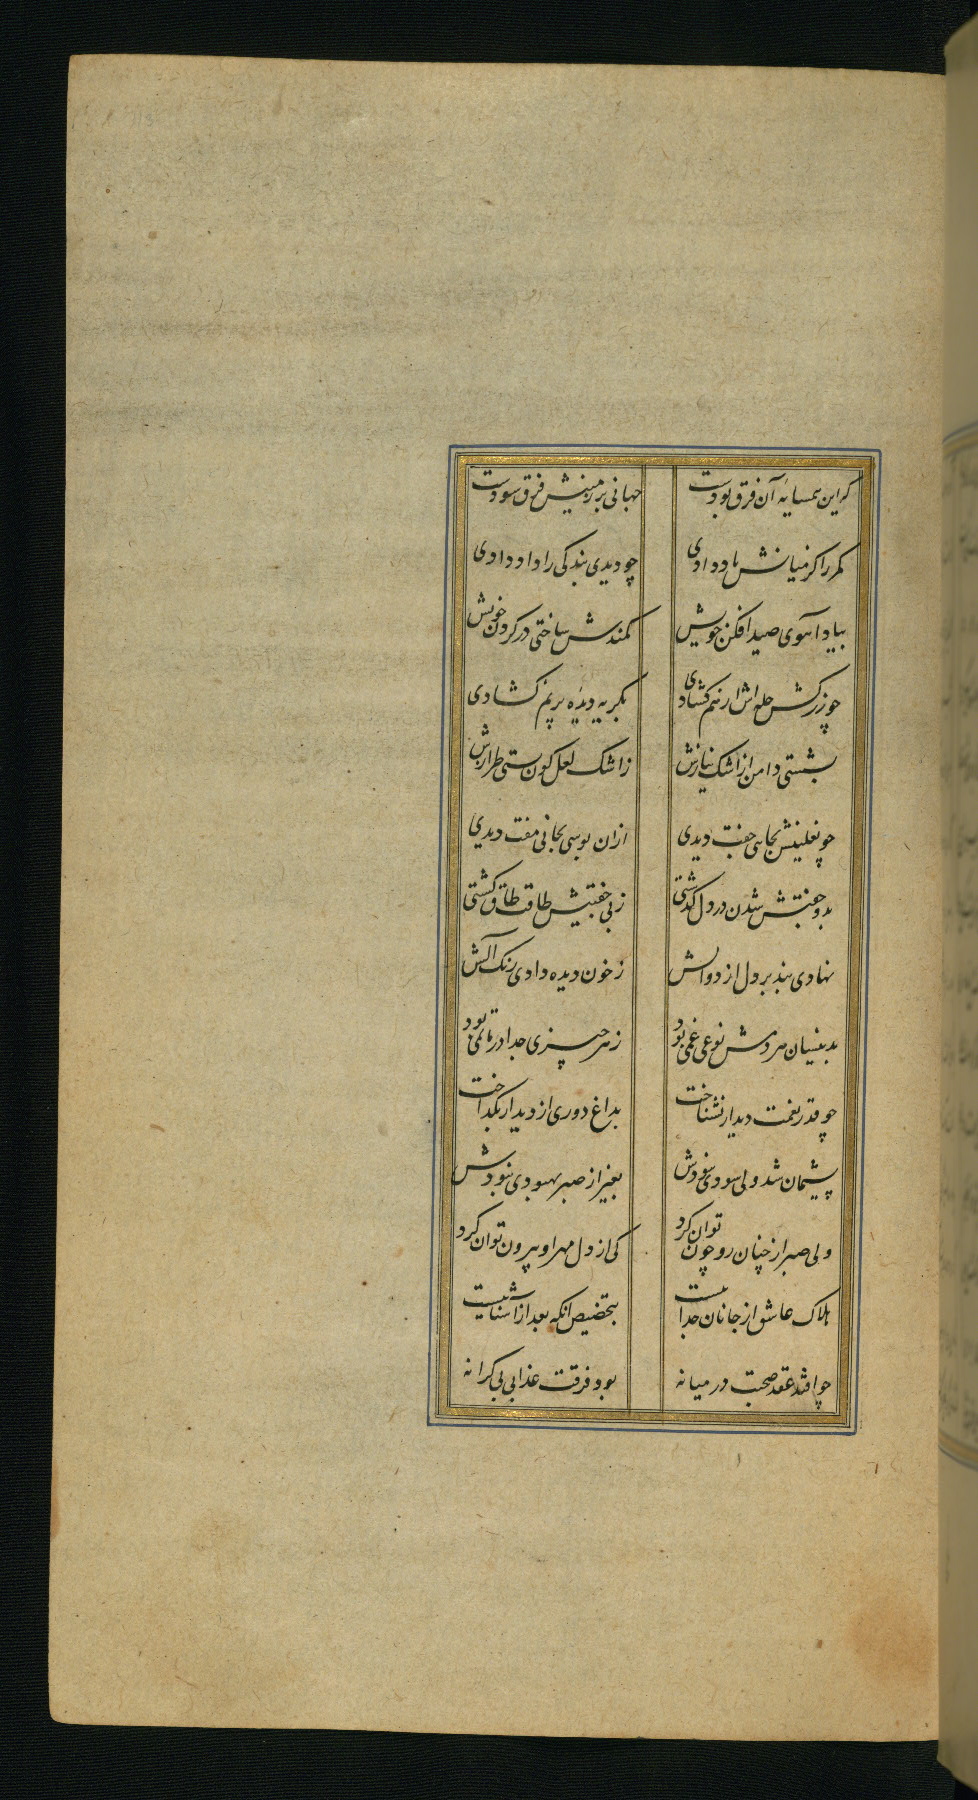 که این همسایهٔ آن فرق بودست جهانی بر زمینش فرق سودست
کمر را کز میانش یاد دادی چو دیدی بندگی را داد دادی
بیاد آهوی صید افکن خویش کمندش ساختی در گردن خویش
چو زرکش حله‌اش از هم گشادی بگریه دیدهٔ پر نم گشادی
بشستی دامن از اشک نیازش ز اشک لعل گون بستی طرازش
چو نعلینش بجایی جفت دیدی ازان بوسی بجانی مفت دیدی
بدو جفتش شدن در دل گذشتی ز بی جفتیش طاقت طاق گشتی
نهادی بند بر دل از دوالش ز خون دیده دادی رنگ آلش
بدینسان هر دمش نوعی غمی بود ز هر چیزی جدا در ماتمی بود
چو قدر نعمت دیدار نشناخت بداغ دوری از دیدار بگداخت
پشیمان شد ولی سودی نبودش بغیر از صبر بهبودی نبودش
ولی صبر از چنان رو چون توان کرد کی از دل مهر او بیرون توان کرد
هلاک عاشق از جانان جداییست بتخصیص انکه بعد از آشناییست
چو افتد عقد صحبت در میانه بود فرقت عذابی بی کرانه